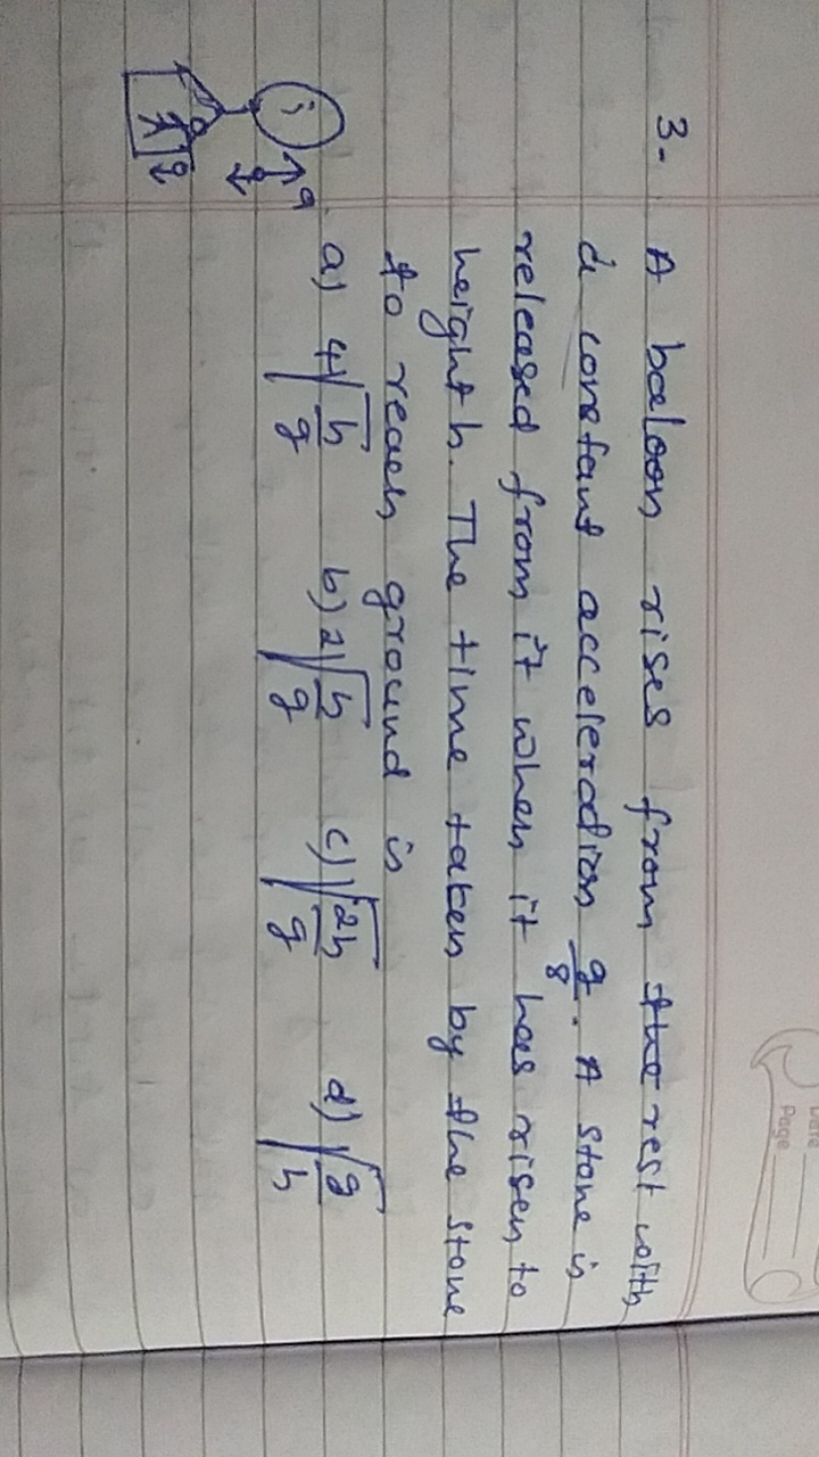 Date
Page
3. A baloon rises from the rest with
a constant acceleration g/8. A stone is
released from it when it has risen to
height h. The time taken by the stone
to reach ground is
a) 4√(h/g) b) 2√(h/g) c) √(2h/g) d) √(g/h)
a
g
g